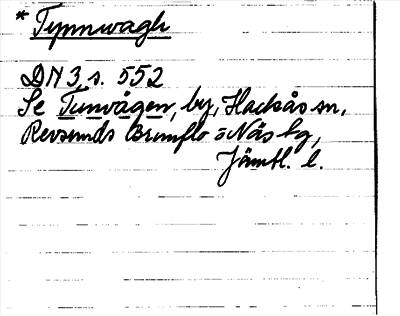 * Tynnwagh
DN 3 s. 552
Se Tunvågen, by, Hackås sn,
Revsunds Brunflo o Näs tg,
Jämtl. l.